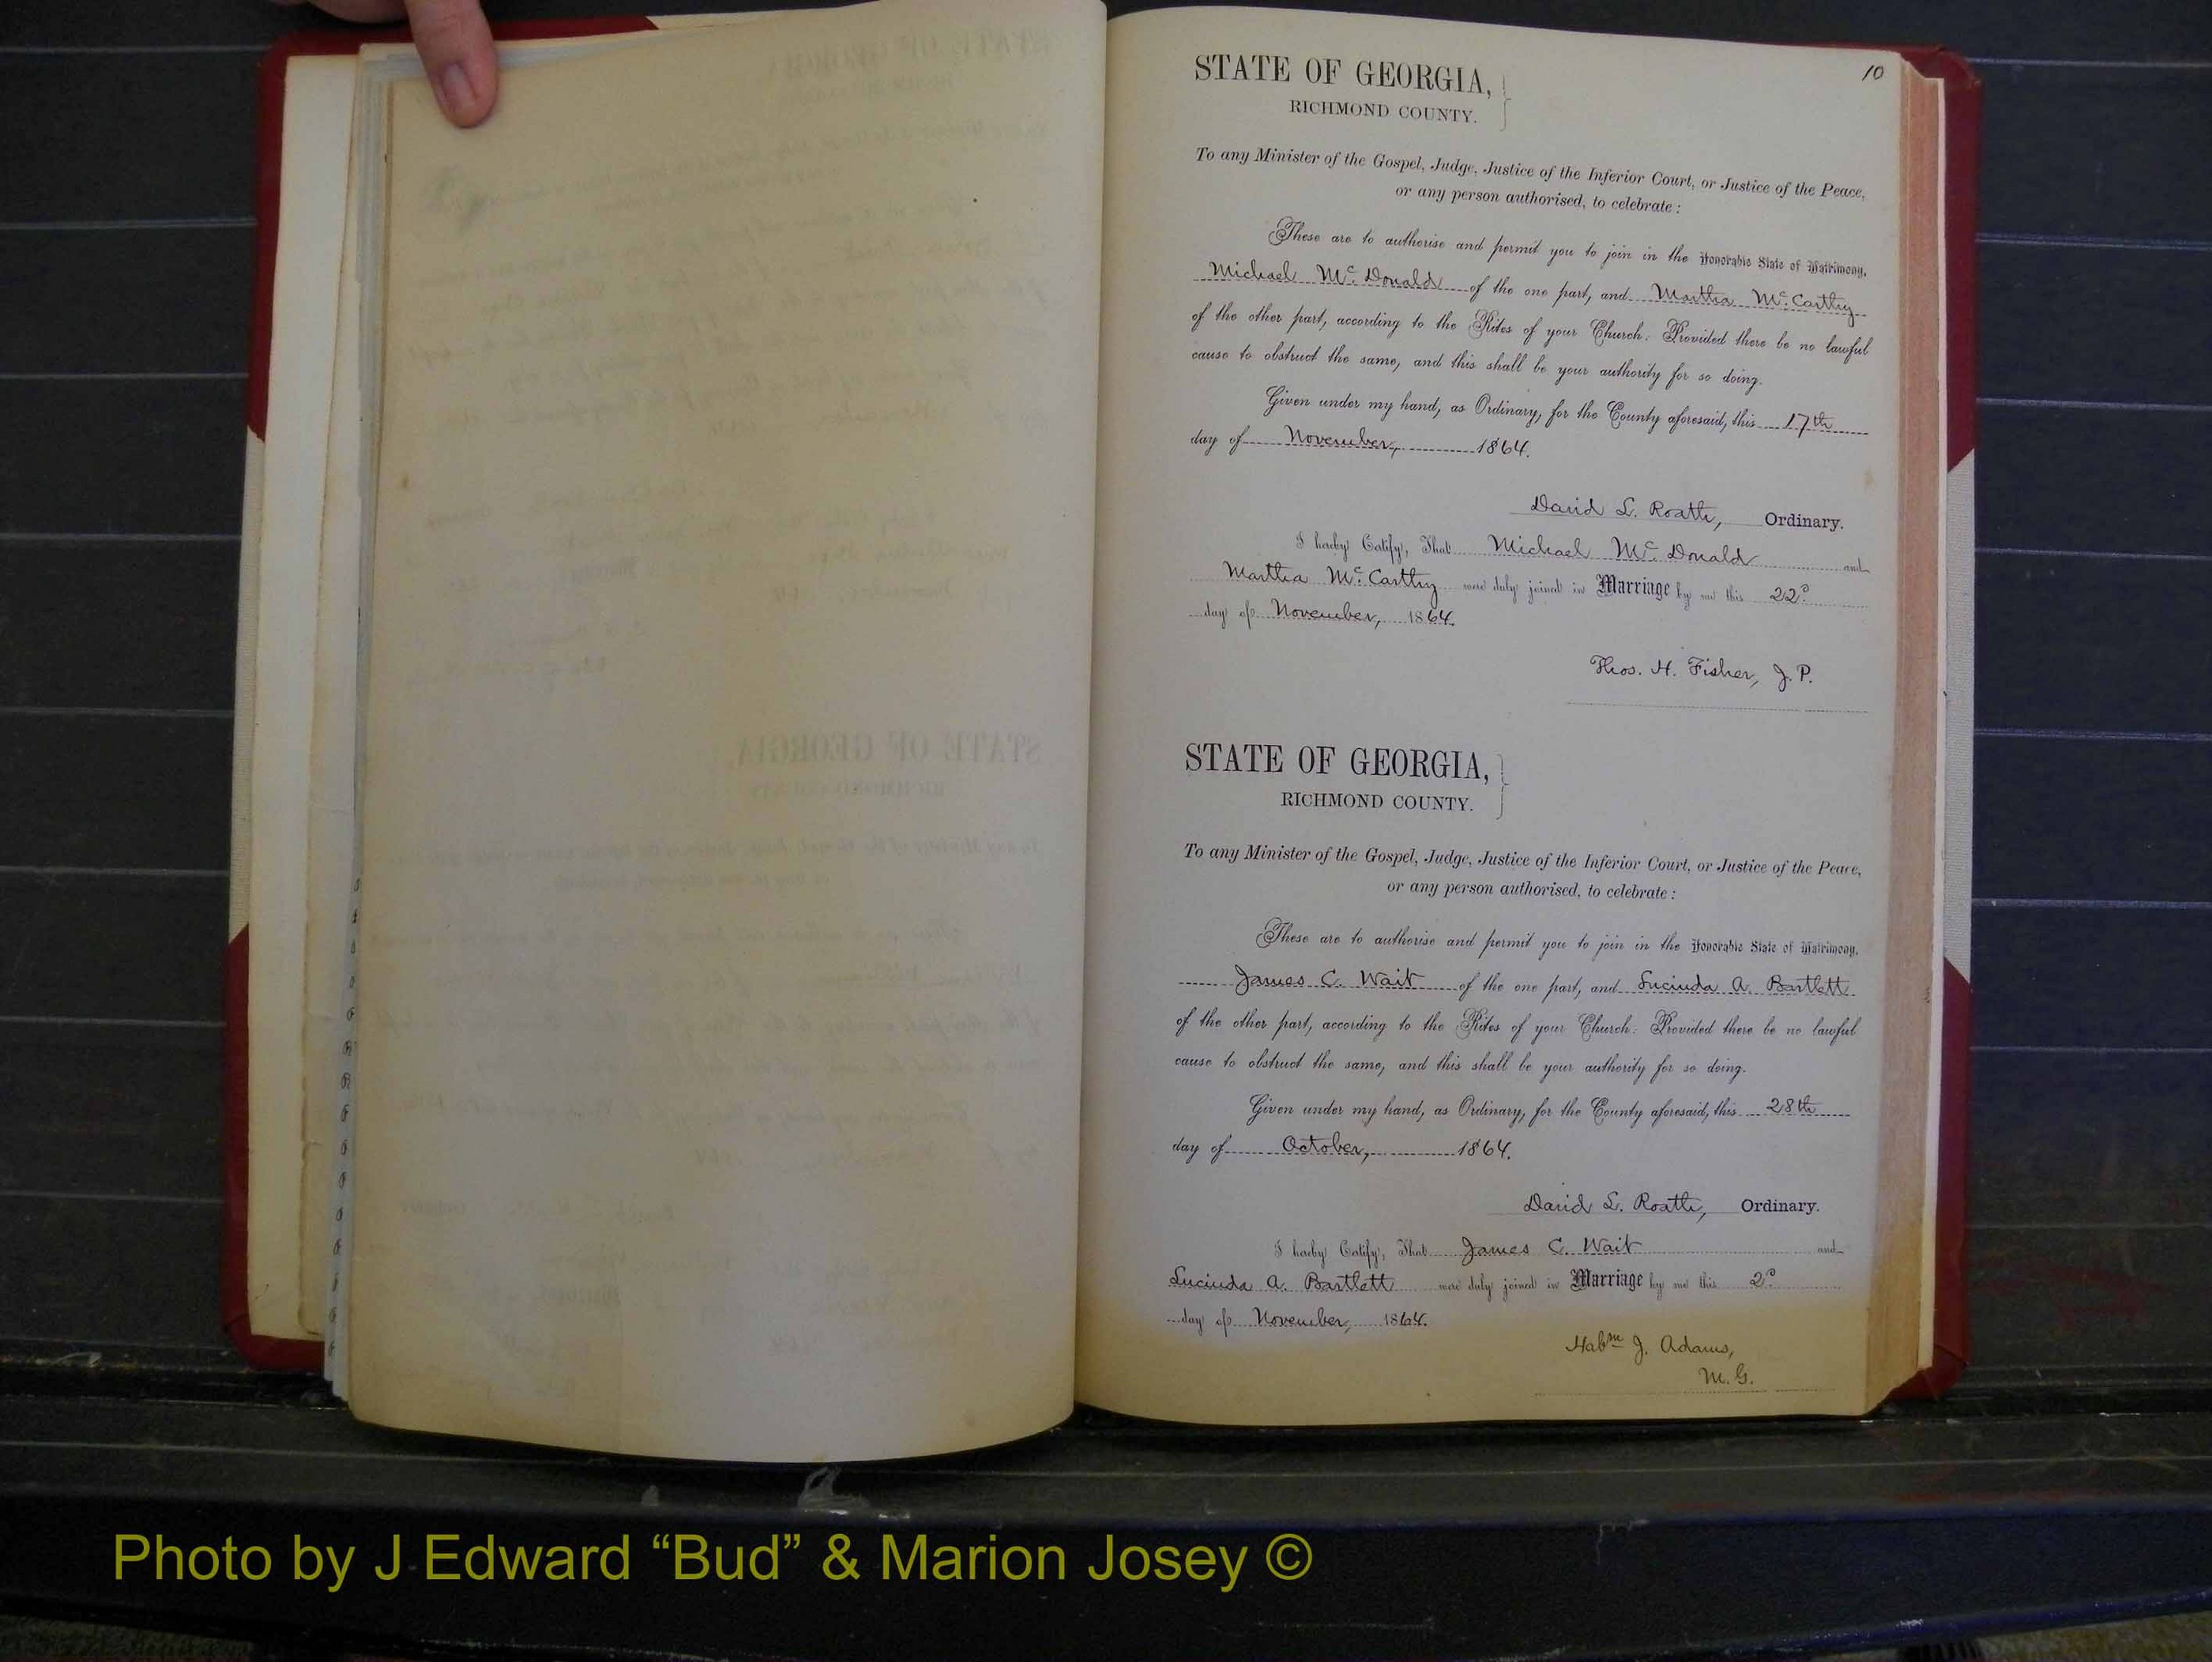 10
STATE OF GEORGIA,
RICHMOND COUNTY.
To any Minister of the Gospel, Judge, Justice of the Inferior Court, or Justice of the Peace,
or any person authorised, to celebrate:
These are to authorise and permit you to join in the Honorable State of Matrimony,
Michael Mc. Donald of the one part, and Martha Mc. Carthy
of the other part, according to the Rites of your Church: Provided there be no lawful
cause to obstruct the same, and this shall be your authority for so doing.
Given under my hand, as Ordinary, for the County aforesaid, this 17th
day of November, 1864.
David L. Roath, Ordinary.
I hereby Certify, That Michael Mc. Donald and
Martha Mc. Carthy were duly joined in Marriage by me this 22d
day of November, 1864.
Thos. H. Fisher, J. P.
STATE OF GEORGIA,
RICHMOND COUNTY.
To any Minister of the Gospel, Judge, Justice of the Inferior Court, or Justice of the Peace,
or any person authorised, to celebrate:
These are to authorise and permit you to join in the Honorable State of Matrimony,
James C. Wait of the one part, and Lucinda A. Bartlett
of the other part, according to the Rites of your Church: Provided there be no lawful
cause to obstruct the same, and this shall be your authority for so doing.
Given under my hand, as Ordinary, for the County aforesaid, this 28th
day of October, 1864.
David L. Roath, Ordinary.
I hereby Certify, That James C. Wait and
Lucinda A. Bartlett were duly joined in Marriage by me this 2d
day of November, 1864.
Habm J. Adams,
M. G.
Photo by J Edward “Bud” & Marion Josey ©